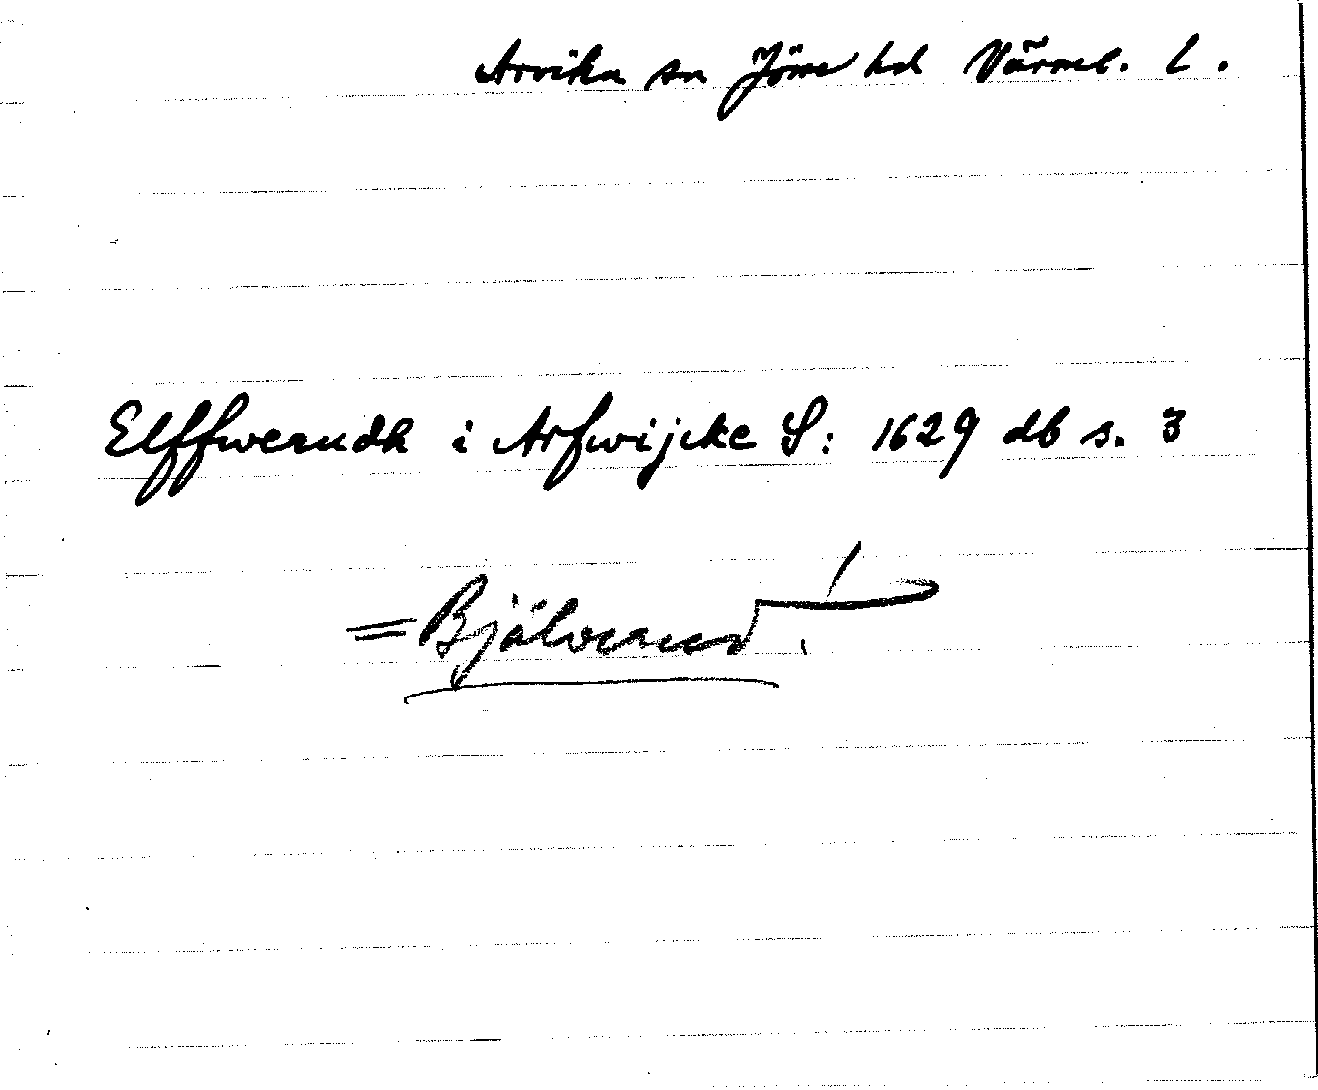 Arvika sn Jösse hd Värml. l.
Elffwerudh i Arfwijcke S: 1629 db s. 3
= Bjälverud!